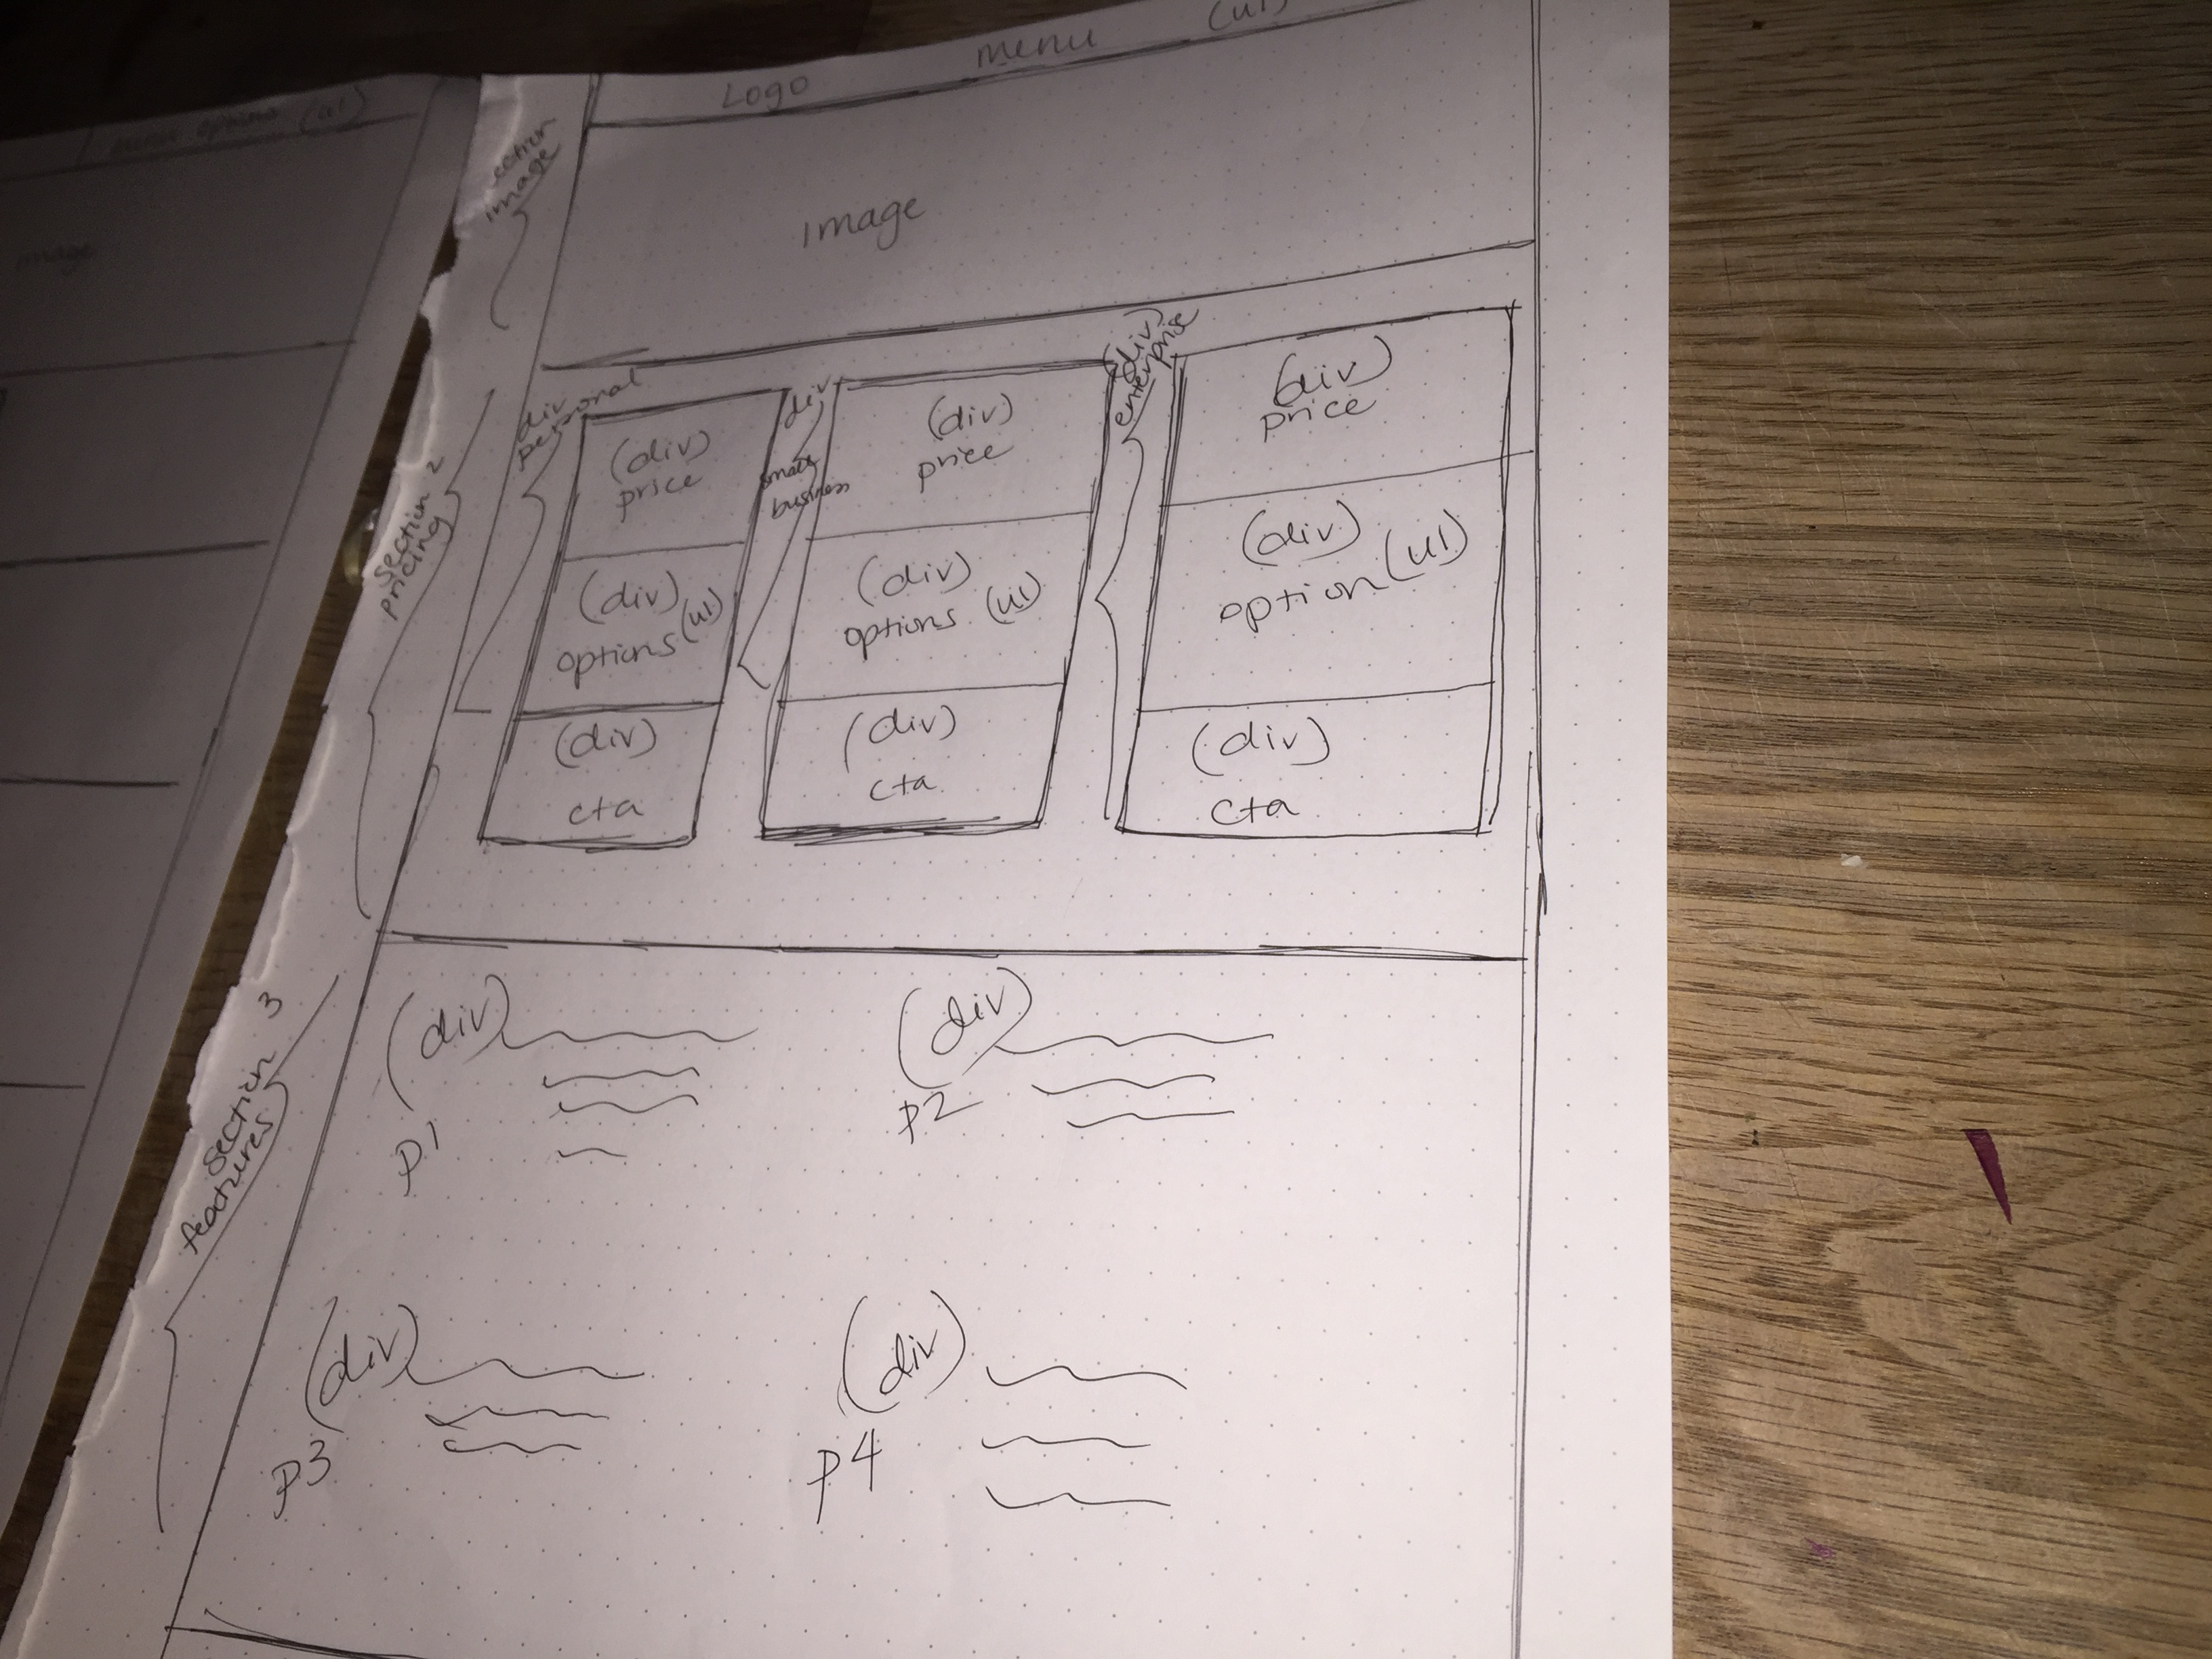 Logo
menu
(ul)
image
image
section 2
pricing
div
personal
(div)
price
(div)
options (ul)
(div)
cta
div
small
business
(div)
price
(div)
options (ul)
(div)
cta
(div)
enterprise
(div)
price
(div)
option (ul)
(div)
cta
section 3
features
(div)
P1
(div)
P2
(div)
P3
(div)
P4
image
(ul)